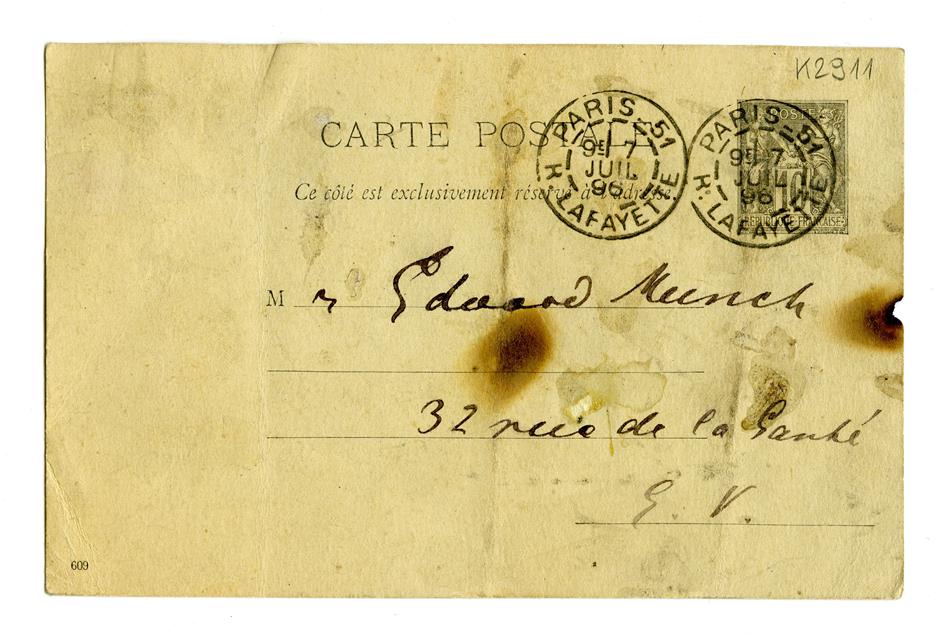 K2911
CARTE POSTALE
Ce côté est exclusivement réservé à l'adresse.
PARIS_51
9E 7
JUIL
96
R. LAFAYETTE
PARIS_51
9E 7
JUIL
96
R. LAFAYETTE
POSTES
10
REPUBLIQUE FRANCAISE
M r Edouard Munch
32 rue de la Santé
E. V.
609